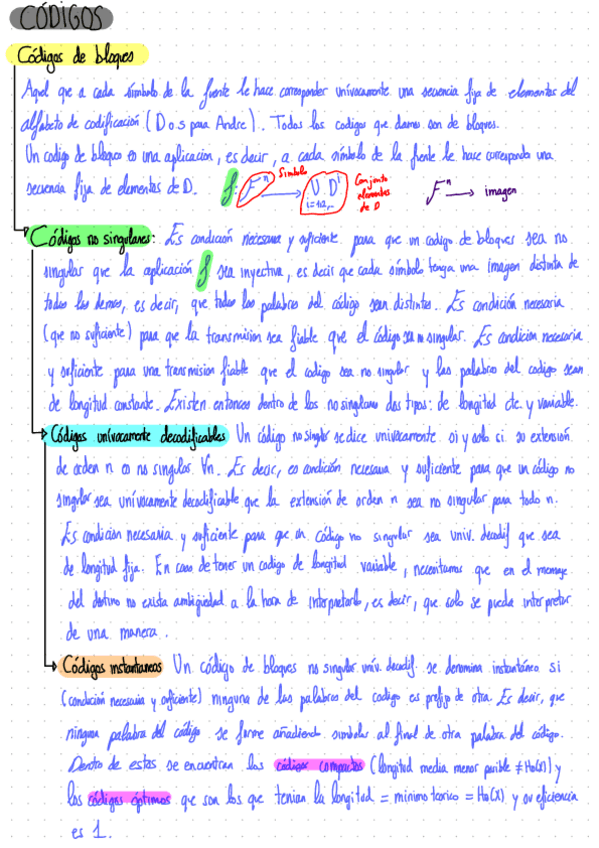 CÓDIGOS
Códigos de bloques
Aquel que a cada símbolo de la fuente le hace corresponder unívocamente una secuencia fija de elementos del
alfabeto de codificación (D o S para Andre). Todos los codigos que damos son de bloques.
Un codigo de bloques es una aplicacion, es decir, a cada símbolo de la fuente le hace corresponder una
secuencia fija de elementos de D. f: Fⁿ → ∪ Dⁱ i=1,2,... Simbolo Conjunto elementos de D Fⁿ → imagen
Códigos no singulares: Es condición necesaria y suficiente para que un codigo de bloques sea no
singular que la aplicación f sea inyectiva, es decir que cada símbolo tenga una imagen distinta de
todos los demas, es decir, que todas las palabras del código sean distintas. Es condición necesaria
(que no suficiente) para que la transmision sea fiable que el código sea no singular. Es condicion necesaria
y suficiente para una transmision fiable que el codigo sea no singular y las palabras del codigo sean
de longitud constante. Existen entonces dentro de los no singulares dos tipos: de longitud cte. y variable.
Códigos unívocamente decodificables Un código no singular se dice univocamente si y solo si su extensión
de orden n es no singular ∀n. Es decir, es condición necesaria y suficiente para que un código no
singular sea unívocamente decodificable que la extensión de orden n sea no singular para todo n.
Es condicion necesaria y suficiente para que un código no singular sea univ. decodif que sea
de longitud fija. En caso de tener un codigo de longitud variable, necesitamos que en el mensaje
del destino no exista ambigüedad a la hora de interpretarlo, es decir, que solo se pueda interpretar
de una manera.
Códigos instantaneos Un código de bloques no singular univ. decodif. se denomina instantáneo si
(condición necesaria y suficiente) ninguna de las palabras del codigo es prefijo de otra. Es decir, que
ninguna palabra del código se forme añadiendo simbolos al final de otra palabra del código.
Dentro de estas se encuentran los códigos compactos (longitud media menor posible ≠ H₀(X)) y
los códigos óptimos que son los que tenian la longitud = minimo teorico = H₀(X) y su eficiencia
es 1.